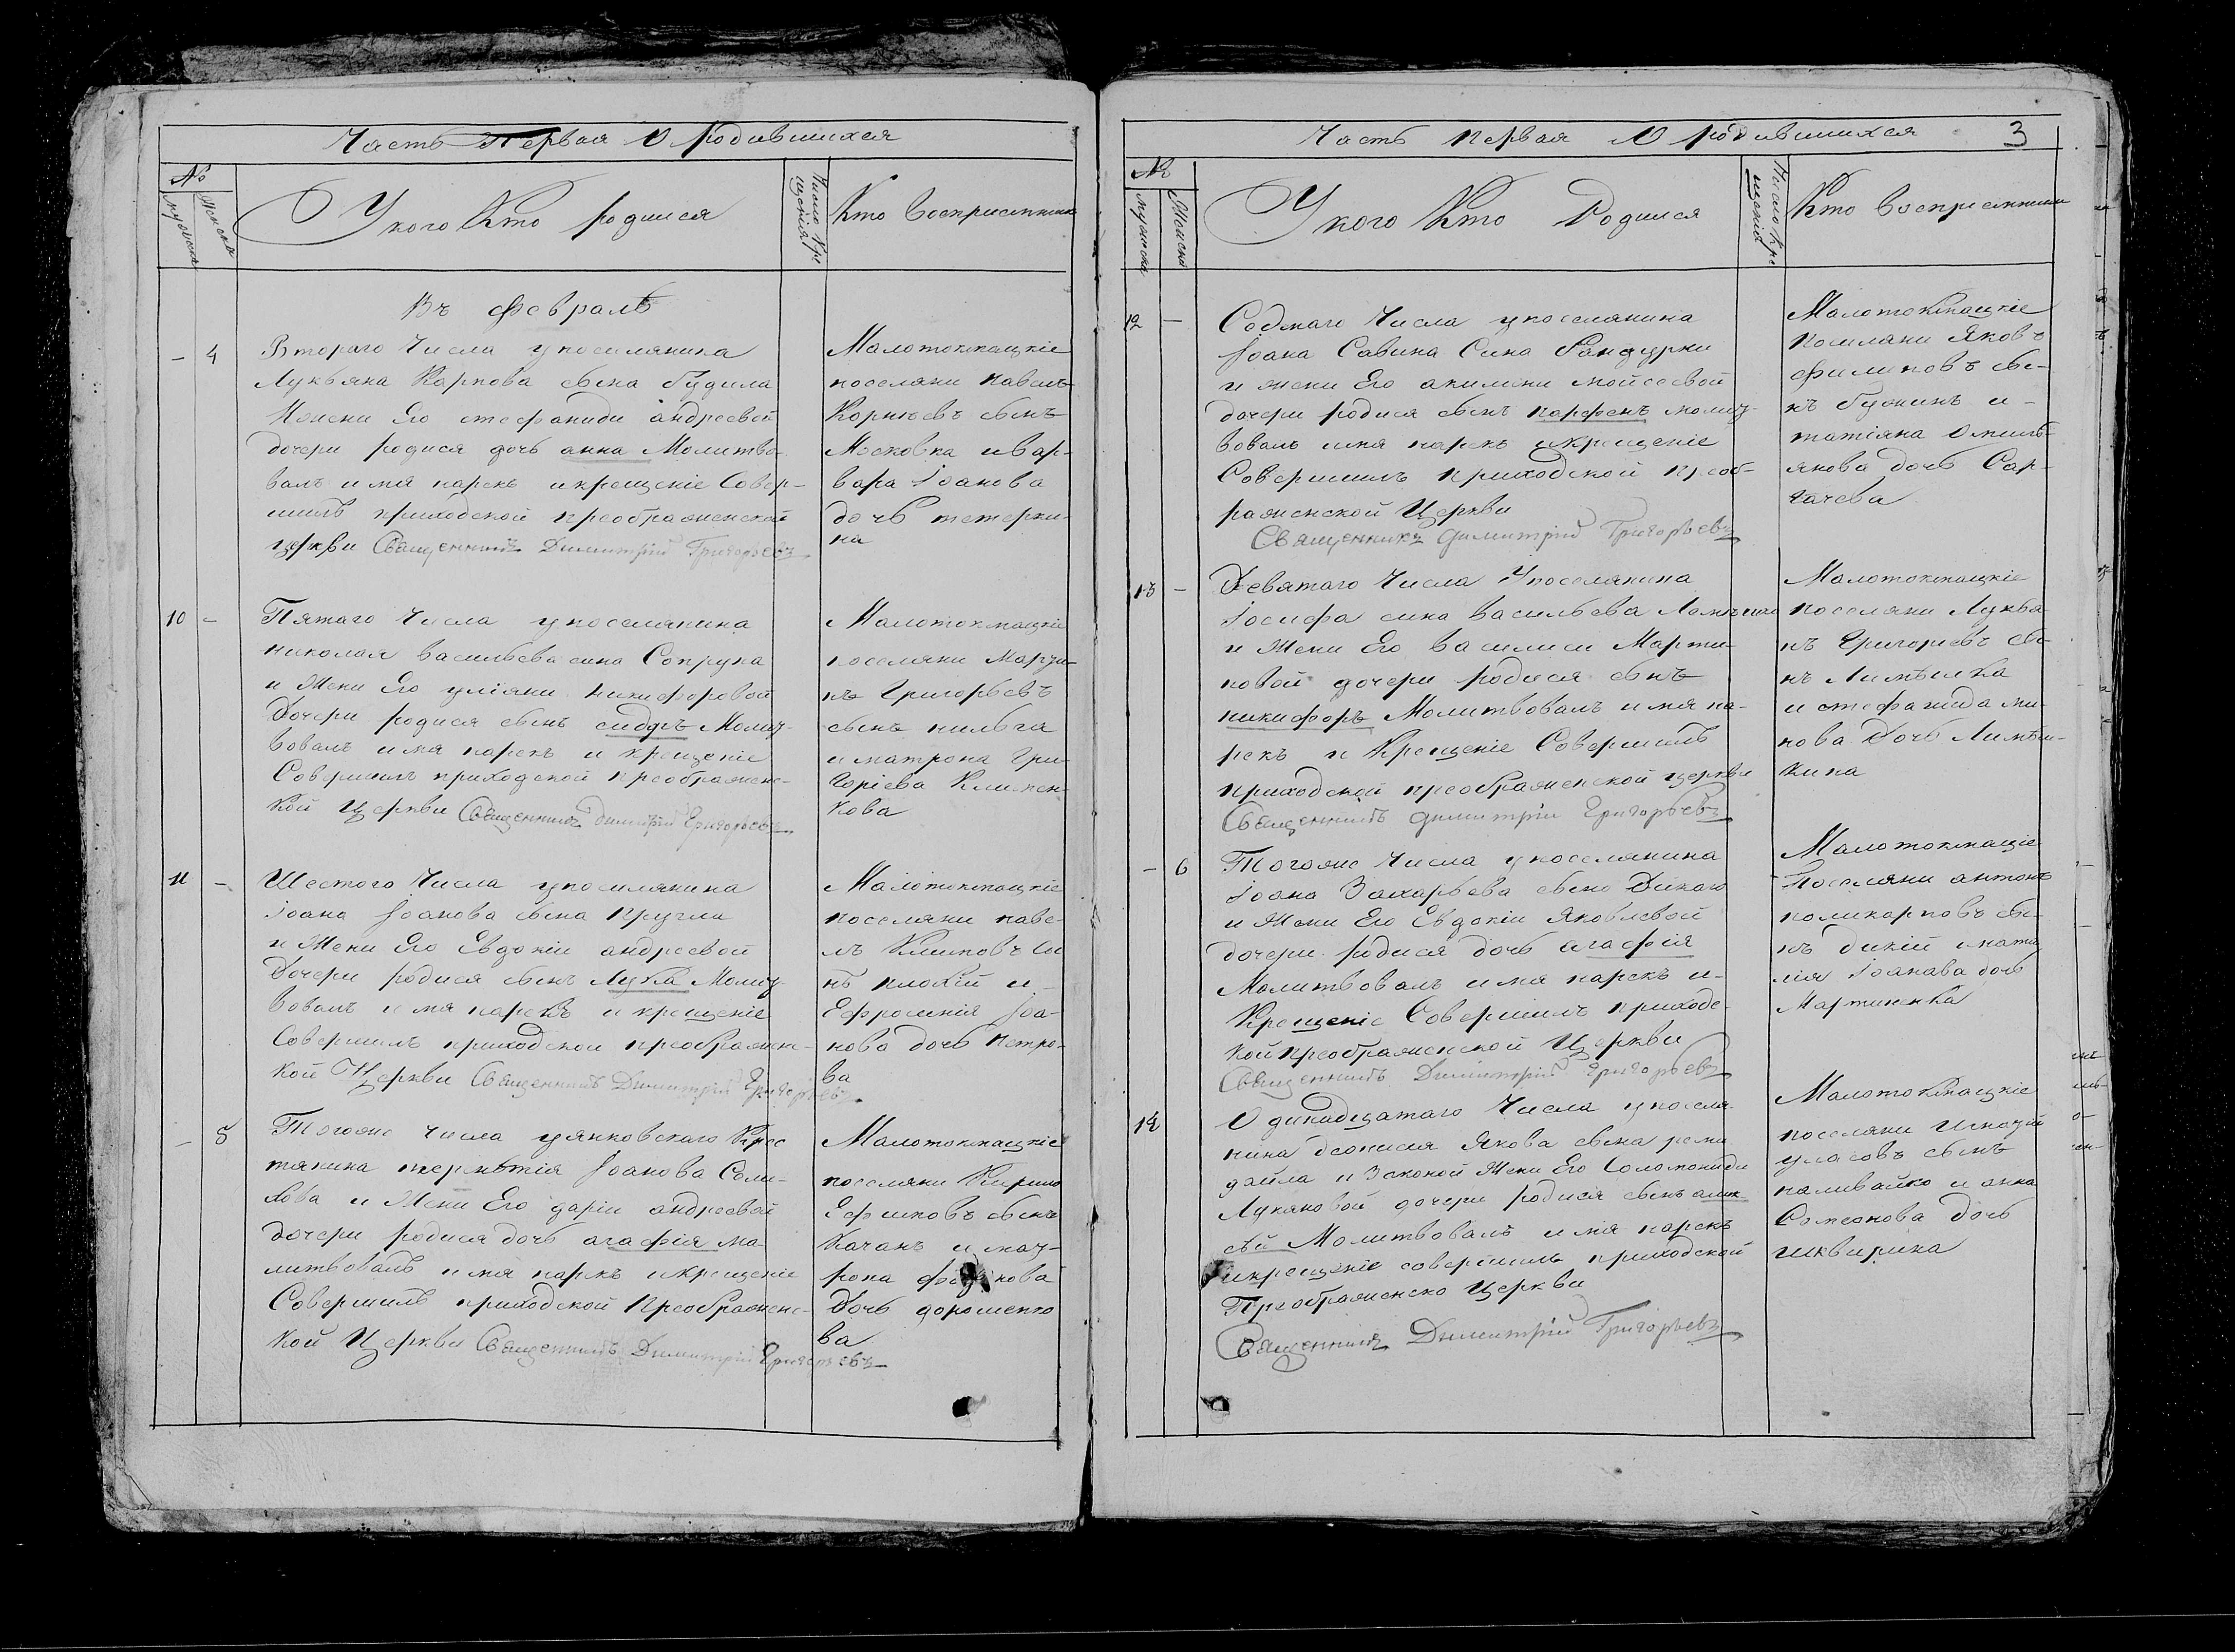 Часть Первая О родившихся
№
Мужеска
Женска
У кого Кто родился
Число Кре
щенія
Кто восприемники
Въ февралѣ
– 4
Втораго Числа упоселянина
Лукьяна Карпова сына Гудила
Ижени Его стефаниди андреевой
дочери родися дочь анна Молитво
валъ имя нарекъ икрещеніе Совер-
шилъ приходской преображенской
церкви Священникъ Димитрій Григорьевъ
Малотокмацкіе
поселяни павелъ
Корнѣевъ сынъ
Московка ивар-
вара Іоанова
дочь тетерки-
на
10 –
Пятаго Числа упоселянина
николая васильева сина Сопруна
и Жени Его уліяни никифоровой
Дочери родися сынъ сидоръ Молит-
вовалъ имя нарекъ и крещеніе
Совершилъ приходской преображенс-
кой Церкви Священникъ Димитрій Григорьевъ
Малотокмацкіе
поселяни Марти-
нъ Григорьевъ
сынъ
и матрона Гри-
горіева Климен-
кова
11 –
Шестого Числа упоселянина
іоана Іоанова сына Кругли
и Жени Его Евдокіи андреевой
Дочери родися сынъ Лука Молит-
вовалъ имя нарекъ и крещеніе
Совершилъ приходской преображенс-
кой Церкви Священникъ Димитрій Григорьевъ
Малотокмацкіе
поселяни паве-
лъ Климовъ си
нъ плохій и-
Ефросинія Іоа-
нова дочь Петро-
ва
– 5
Тогоже числа уянковскаго Крес
тянина терентія Іоанова
и Жени Его даріи андреевой
дочери родися дочь агафія мо-
литвовалъ имя нарекъ икрещеніе
Совершилъ приходской Преображенс-
кой Церкви Священникъ Димитрій Григорьевъ
Малотокмацкіе
поселяни Кирило
Ефимовъ сынъ
Качанъ и мат-
рона
Дочь дорошенко
ва
Часть Первая О родившихся 3
№
мужеска
Женска
У кого Кто Родился
Число Кре
щенія
Кто восприемники
12 –
Седмаго Числа упоселянина
Іоана Савина Сина Гандурки
и жени Его акилини мойсеевой
дочери родися сынъ парфенъ молит-
вовалъ имя нарекъ икрещеніе
Совершилъ Приходской Преоб-
раженской Церкви
Священникъ Димитрій Григорьевъ
Малотокмацкіе
поселяни Яковъ
филиповъ сы-
нъ Гужинъ и-
татіяна Омель-
янова дочь Сар-
гачева
13 –
Девятаго Числа Упоселянина
Іосифа сина васильева
и Жени Его василиси Марти-
новой дочери родися сынъ
никифоръ Молитвовалъ имя на-
рекъ и Крещеніе Совершилъ
приходской преображенской церкви
Священникъ Димитрій Григорьевъ
Малотокмацкіе
поселяни Лукья
нъ Григориевъ сы-
нъ Лимѣшка
и стефанида ми-
нова Дочь Лимѣш-
кина
– 6
Тогоже Числа упоселянина
іоана Захарьева сына Дикаго
и Жени Его Евдокіи Яковлевой
дочери родися дочь агафія
Молитвовалъ имя нарекъ и-
Крещеніе Совершилъ приходс-
кой преображенской Церкви
Священникъ Димитрій Григорьевъ
Малотокмацкіе
Поселяни антонъ
поликарповъ сы-
нъ дикій ината
лія Іоанава дочь
Мартиненка
14
Одинадцатаго Числа упоселя-
нина деонисия Якова сына
и Законой Жени Его Соломониди
Лукяновой дочери родися сынъ алек
сѣй Молитвовалъ имя нарекъ
икрещеніе совершилъ приходской
Преображенско Церкви
Священникъ Димитрій Григорьевъ
Малотокмацкіе
поселяни Игнатій
уласовъ сынъ
наливайко и анна
Семеонова дочь
шквирина